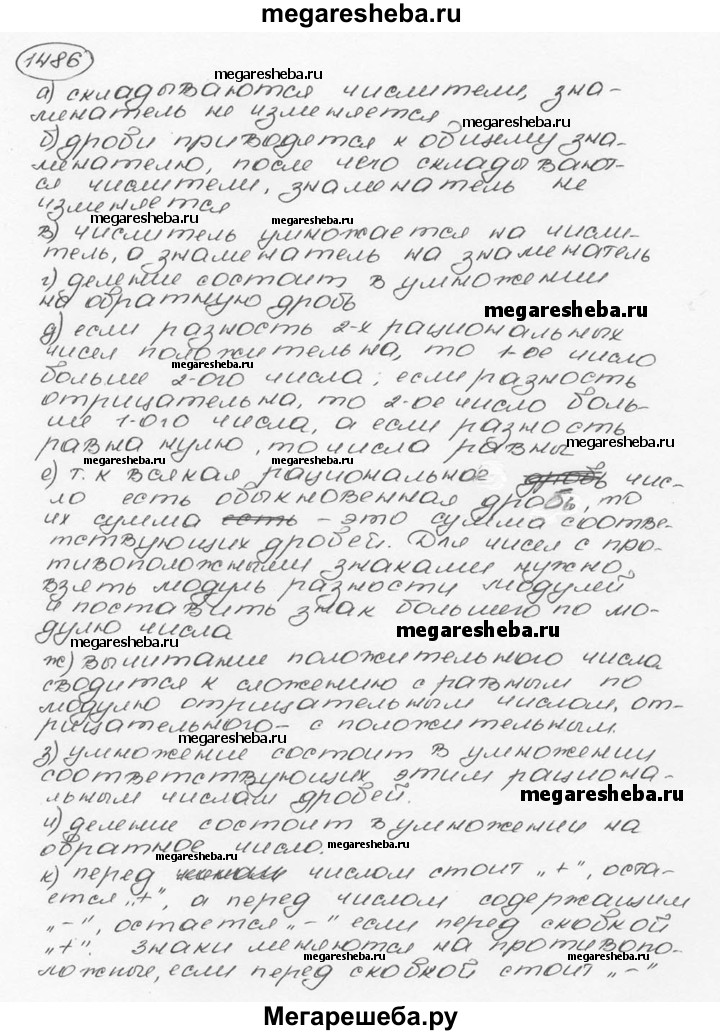 megaresheba.ru
1486
megaresheba.ru
а) складываются числители, зна-
менатель не изменяется
megaresheba.ru
б) дроби приводятся к общему зна-
менателю, после чего складывают-
ся числители, знаменатель не
изменяется
megaresheba.ru
megaresheba.ru
в) числитель умножается на числи-
тель, а знаменатель на знаменатель
г) деление состоит в умножении
на обратную дробь
megaresheba.ru
д) если разность 2-х рациональных
чисел положительна, то 1-ое число
megaresheba.ru
больше 2-ого числа; если разность
отрицательна, то 2-ое число боль-
ше 1-ого числа, а если разность
равна нулю, то числа равны
megaresheba.ru
megaresheba.ru
е) т.к всякая рациональное дробь чис-
ло есть обыкновенная дробь, то
их сумма есть – это сумма соотве-
тствующих дробей. Для чисел с про-
тивоположными знаками нужно
взять модуль разности модулей
и поставить знак большего по мо-
дулю числа
megaresheba.ru
megaresheba.ru
ж) вычитание положительного числа
сводится к сложению с равным по
модулю отрицательным числом, от-
рицательного – с положительным.
megaresheba.ru
з) умножение состоит в умножении
соответствующих этим рациона-
льным числам дробей.
megaresheba.ru
и) деление состоит в умножении на
обратное число.
megaresheba.ru
к) перед числом стоит „+", оста-
ется „+", а перед числом содержащим
„–", остается „–" если перед скобкой
„+". Знаки меняются на противопо-
ложные, если перед скобкой стоит „–"
megaresheba.ru
Мегарешеба.ру